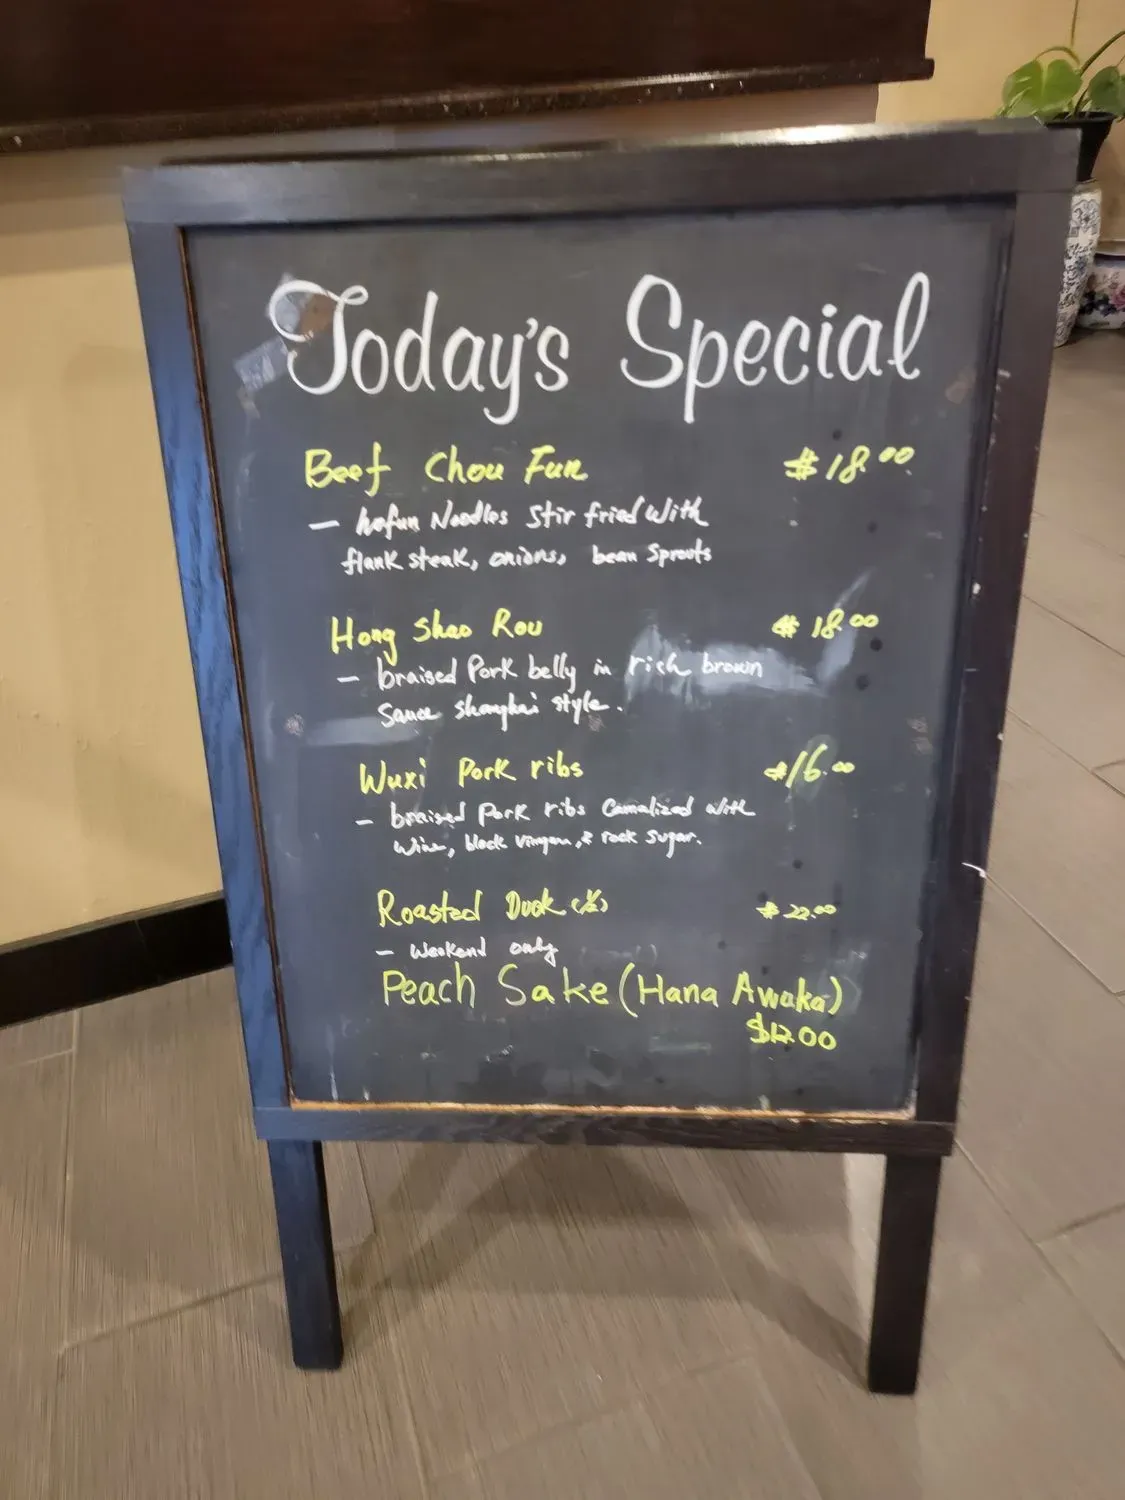 Today's Special
Beef Chou Fun $18.00
- hofun Noodles Stir fried With
flank steak, onions, bean Sprouts
Hong Shao Rou $18.00
- braised Pork belly in rich brown
Sauce Shanghai style.
Wuxi Pork ribs $16.00
- braised Pork ribs Camalized with
Wine, black & rock Sugar.
Roasted Duck (½) $22.00
- Weekend only
Peach Sake (Hana Awaka)
$12.00